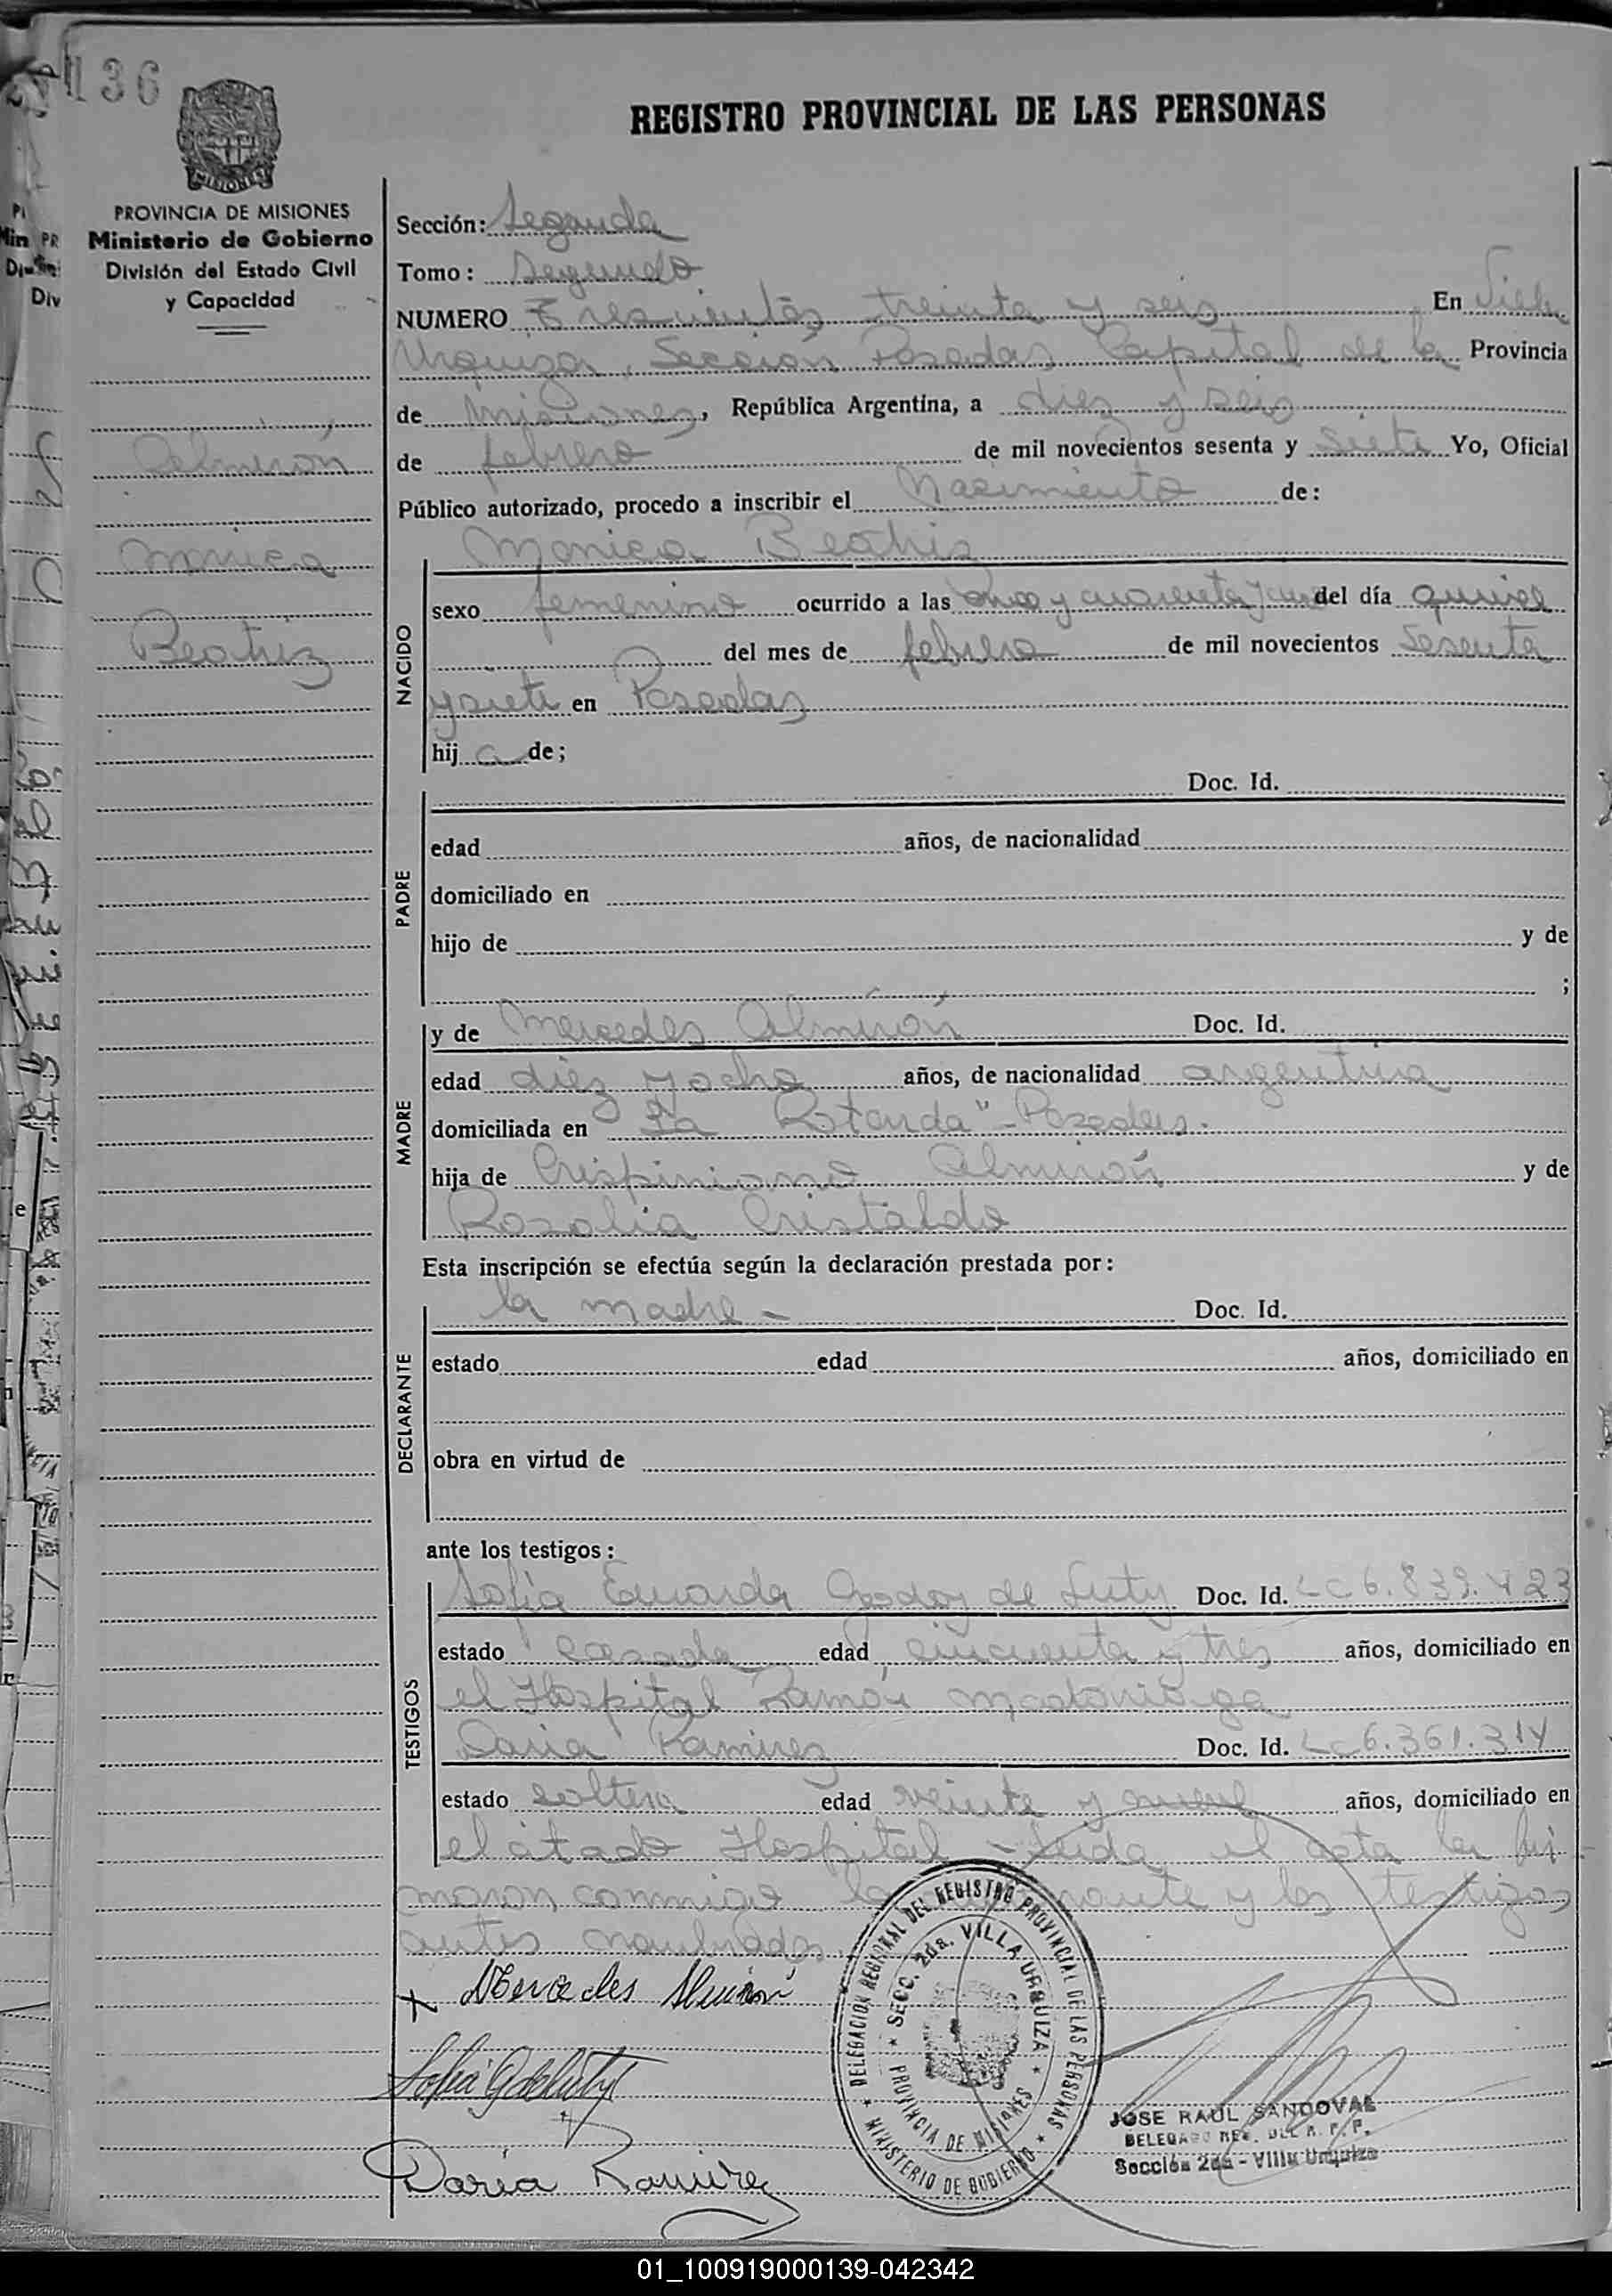 136
REGISTRO PROVINCIAL DE LAS PERSONAS
MISIONES
PROVINCIA DE MISIONES
Ministerio de Gobierno
División del Estado Civil
y Capacidad
Almirón
Monica
Beatriz
Sección: Segunda
Tomo: Segundo
NUMERO Trescientos treinta y seis En Villa
Urquiza, Sección Posadas Capital de la Provincia
de Misiones, República Argentina, a diez y seis
de febrero de mil novecientos sesenta y siete Yo, Oficial
Público autorizado, procedo a inscribir el Nacimiento de:
Monica Beatriz
NACIDO
sexo femenino ocurrido a las once y cuarenta y cinco del día quince
del mes de febrero de mil novecientos sesenta
y siete en Posadas
hij a de;
PADRE
Doc. Id.
edad años, de nacionalidad
domiciliado en
hijo de y de
;
MADRE
y de Mercedes Almirón Doc. Id.
edad diez y ocho años, de nacionalidad argentina
domiciliada en "La Rotonda" - Posadas.
hija de Crispiniano Almirón y de
Rosalia Cristaldo
Esta inscripción se efectúa según la declaración prestada por:
DECLARANTE
la madre - Doc. Id.
estado edad años, domiciliado en
obra en virtud de
ante los testigos:
TESTIGOS
Sofia Eduarda Godoy de Luty Doc. Id. LC 6.839.423
estado casada edad cincuenta y tres años, domiciliado en
el Hospital Ramón Madariaga
Daria Ramirez Doc. Id. LC 6.361.314
estado soltera edad veinte y nueve años, domiciliado en
el citado Hospital - Leida el acta la fir-
maron conmigo la y los testigos
antes nombrados.
x Mercedes Almirón
Sofia G de Luty
Daria Ramirez
DELEGACION REGIONAL DEL REGISTRO PROVINCIAL DE LAS PERSONAS
MINISTERIO DE GOBIERNO
SECC. 2da. VILLA URQUIZA
PROVINCIA DE MISIONES
JOSE RAUL SANDOVAL
DELEGADO REG. DEL R. P. P.
Sección 2da - Villa Urquiza
01_100919000139-042342